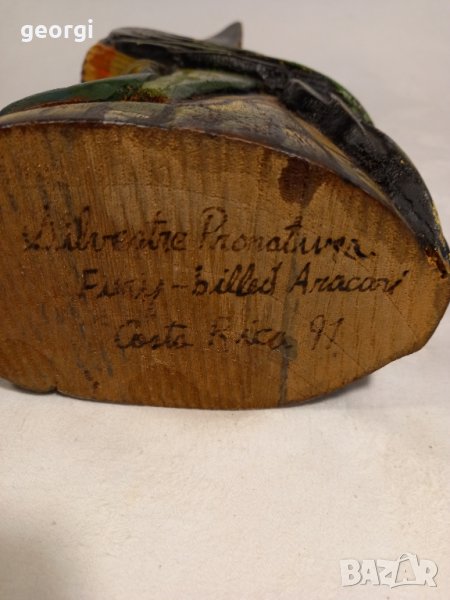 georgi
Silvestre Pronatura
Fury-billed Aracari
Costa Rica 91
BAZAR